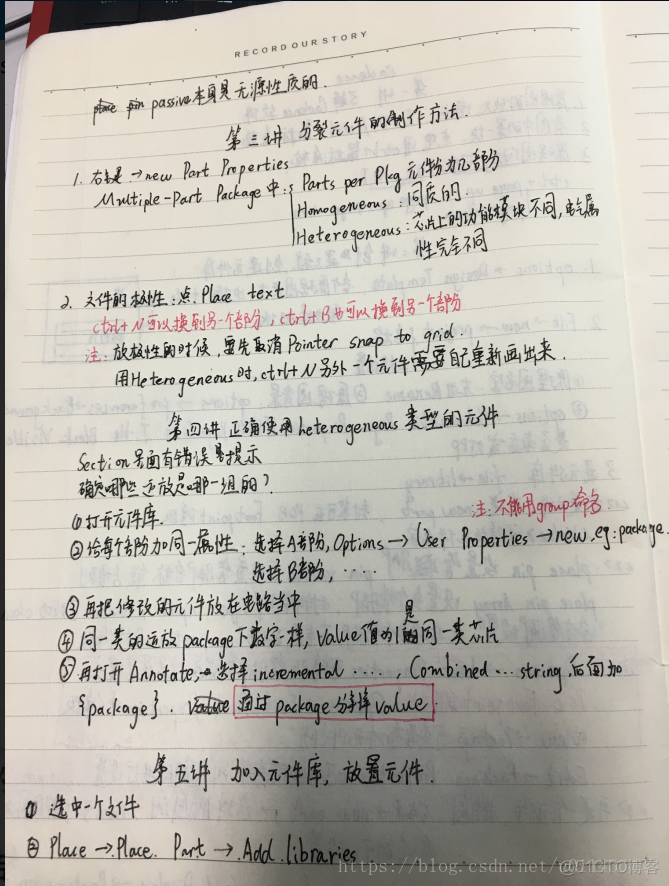 RECORD OUR STORY
passive本身是无源性质的.
第三讲 分裂元件的制作方法.
1. 右键 →new Part Properties
Multiple-Part Package 中: Parts per Pkg 元件分为几部份
Homogeneous: 同质的
Heterogeneous: 芯片上的功能模块不同,电气属
性完全不同
2. 文件的极性:点.Place text
ctrl+N可以换到另一个部份,ctrl+B也可以换到另一个部份
注: 放极性的时候,要先取消Pointer snap to grid.
用Heterogeneous时,ctrl+N另外一个元件需要自己重新画出来.
第四讲 正确使用heterogeneous类型的元件
Section 有错误提示
确定哪些运放是哪一组的?
①打开元件库.
注:不能用group命名
②给每个部份加同一属性: 选择A部份,Options→ User Properties →new,eg:package.
选择B部份,.....
③再把修改的元件放在电路当中
是
④同一类的运放package下数字一样,value值为1的同一类芯片
⑤再打开Annotate, 选择incremental ....., Combined...string,后面加
{package}. 通过package分辨value.
第五讲 加入元件库, 放置元件.
① 选中一个文件
② Place →Place. Part →.Add.libraries
https://blog.csdn.net/